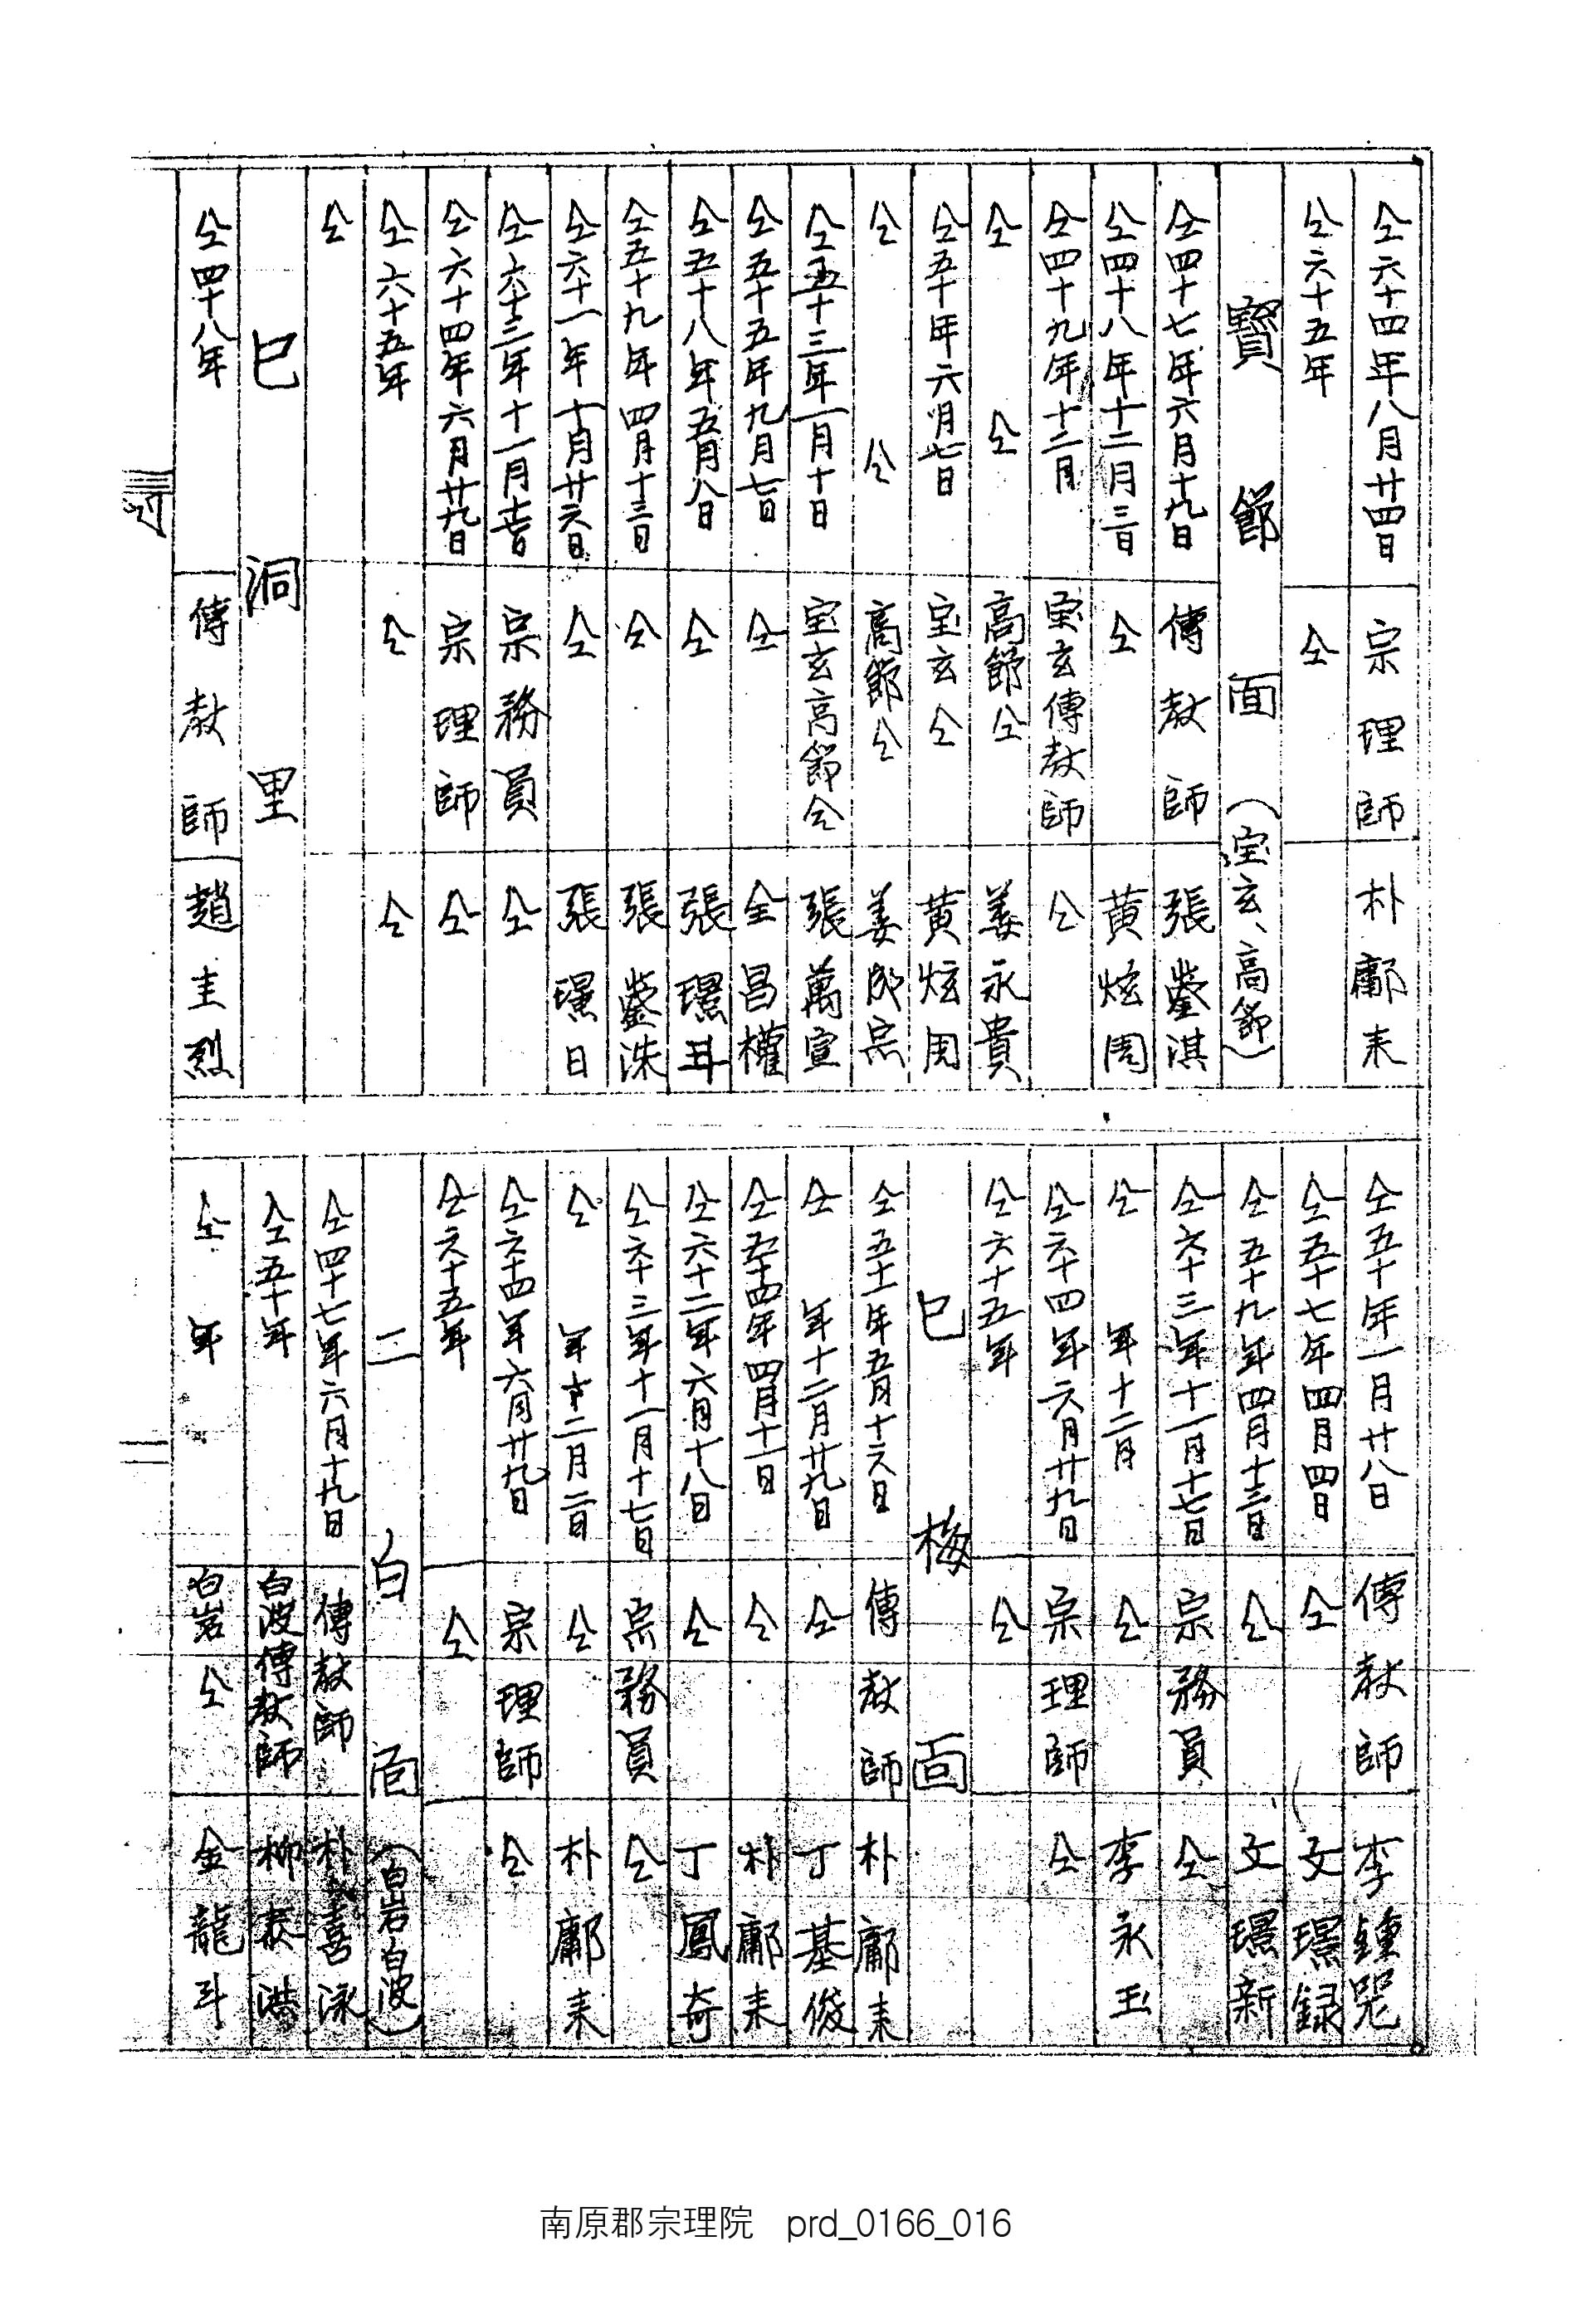 仝六十四年八月廿四日 宗理師 朴鄘来
仝六十五年 仝
寶節面(宝玄、高節)
仝四十七年六月十九日 傳教師 張鎣淇
仝四十八年十二月三日 仝 黄炫周
仝四十九年十二月 宝玄傳教師 仝
仝 仝 高節仝 姜永貴
仝五十年六月七日 宝玄仝 黄炫周
仝 仝 高節仝 姜成宗
仝五十三年一月十日 宝玄高節仝 張萬宣
仝五十五年九月七日 仝 全昌權
仝五十八年五月八日 仝 張璟
仝五十九年四月十三日 仝 張鎣洙
仝六十一年十月廿六日 仝 張璟日
仝六十三年十一月十七日 宗務員 仝
仝六十四年六月廿九日 宗理師 仝
仝六十五年 仝 仝
仝
巳洞里
仝四十八年 傳教師 趙圭烈
仝五十年一月廿八日 傳教師 李鍾
仝五十七年四月四日 仝 文璟録
仝五十九年四月十三日 仝 文璟新
仝六十三年十一月十七日 宗務員 仝
仝 年十二月 仝 李永玉
仝六十四年六月廿九日 宗理師 仝
仝六十五年 仝
巳梅面
仝五十一年五月十六日 傳教師 朴鄘来
仝 年十二月廿九日 仝 丁基俊
仝五十四年四月十一日 仝 朴鄘来
仝六十二年六月十八日 仝 丁鳳奇
仝六十三年十一月十七日 宗務員 仝
仝 年十二月二日 仝 朴鄘来
仝六十四年六月廿九日 宗理師 仝
仝六十五年 仝
二白面(白岩白波)
仝四十七年六月十九日 傳教師 朴喜泳
仝五十年 白波傳教師 柳泰浩
仝 年 白岩仝 金龍斗
南原郡宗理院 prd_0166_016